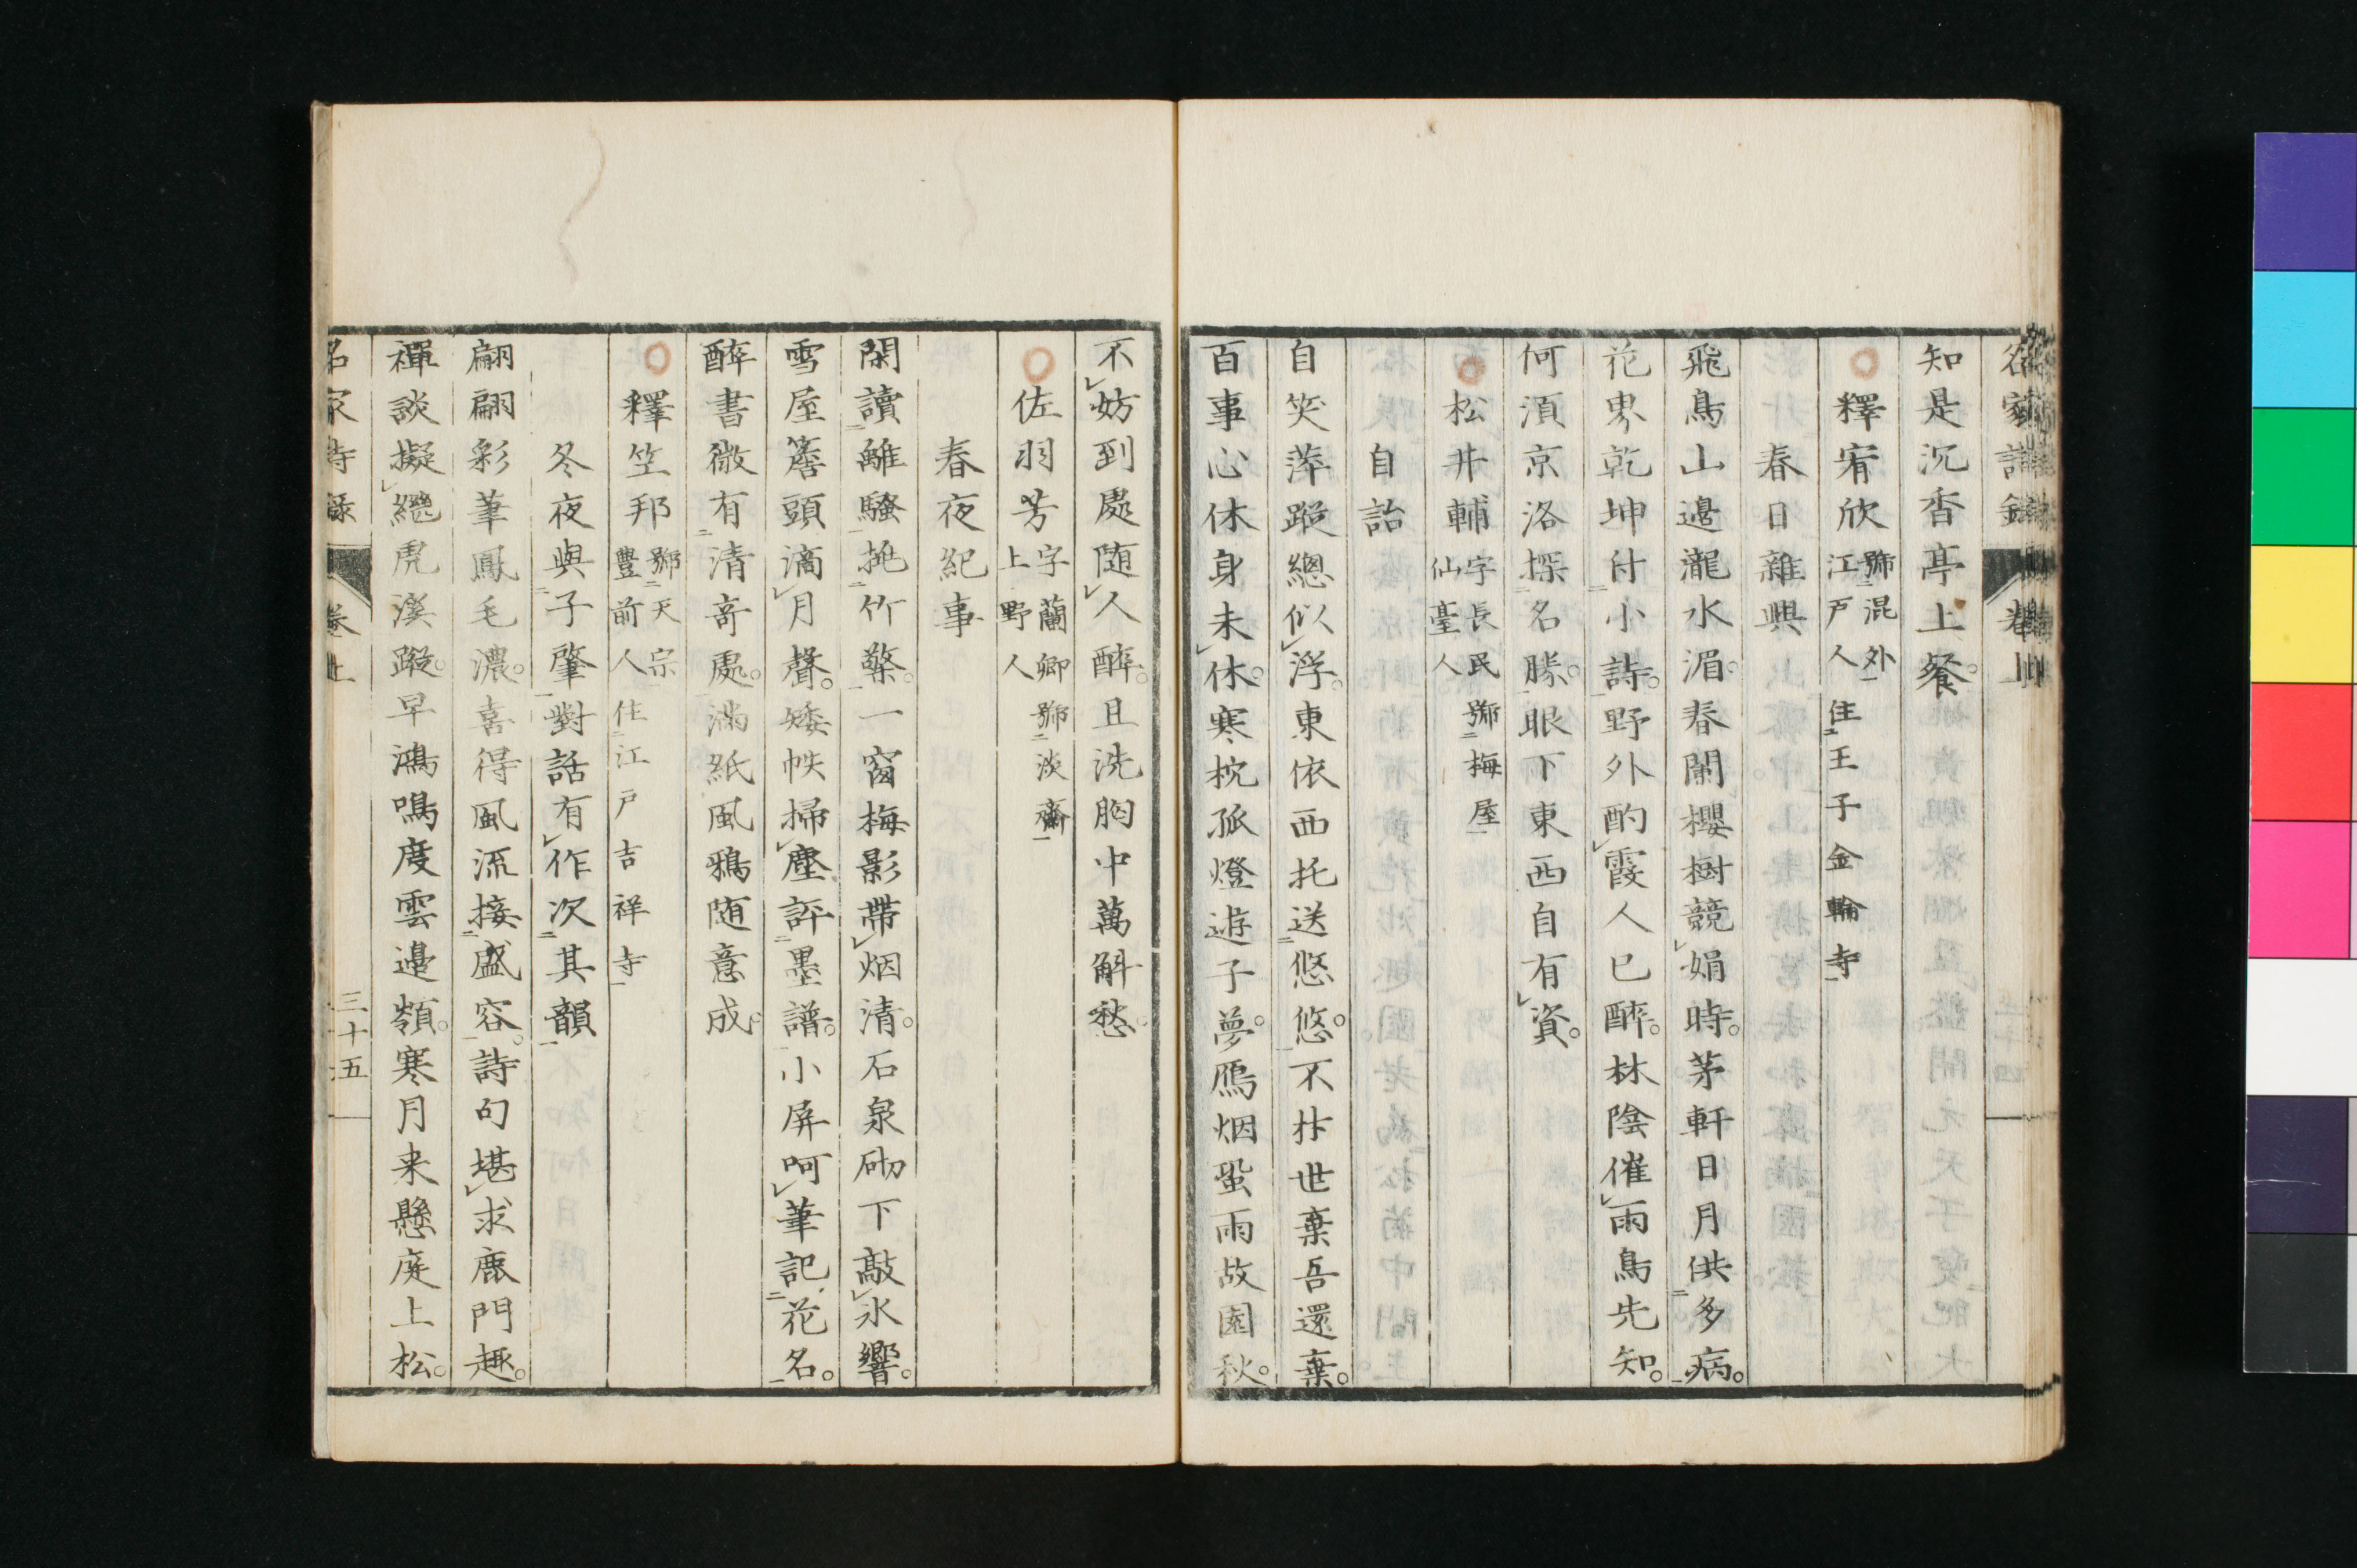 名家詩録 卷上
知是沉香亭上餐。
釋宥欣 號混外 江戸人 住王子金輪寺
春日雜興
飛鳥山邊瀧水湄。春闌櫻樹競娟時。茅軒日月供多病。
花界乾坤付小詩。野外酌霞人已醉。林陰催雨鳥先知。
何須京洛探名勝。眼下東西自有資。
松井輔 字長民號梅屋 仙臺人
自詒
自笑萍蹤總似浮。東依西托送悠悠。不林世棄吾還棄。
百事心休身未休。寒枕孤燈遊子夢。鴈烟蛩雨故園秋。
不妨到處随人醉。且洗胸中萬斛愁。
佐羽芳 字蘭卿號淡齋 上野人
春夜紀事
閑讀離騷挑竹檠。一窗梅影帶烟清。石泉砌下敲氷響。
雪屋簷頭滴月聲。矮帙掃塵評墨譜。小屏呵筆記花名。
醉書微有清奇處。満紙風鴉随意成。
釋笠邦 號天宗 豊前人 住江戸吉祥寺
冬夜與子肇對話有作次其韻
翩翩彩筆鳳毛濃。喜得風流接盛容。詩句堪求鹿門趣。
禪談擬繼虎溪蹤。早鴻鳴度雲邊嶺。寒月来懸庭上松。
名家詩録 卷上 三十五